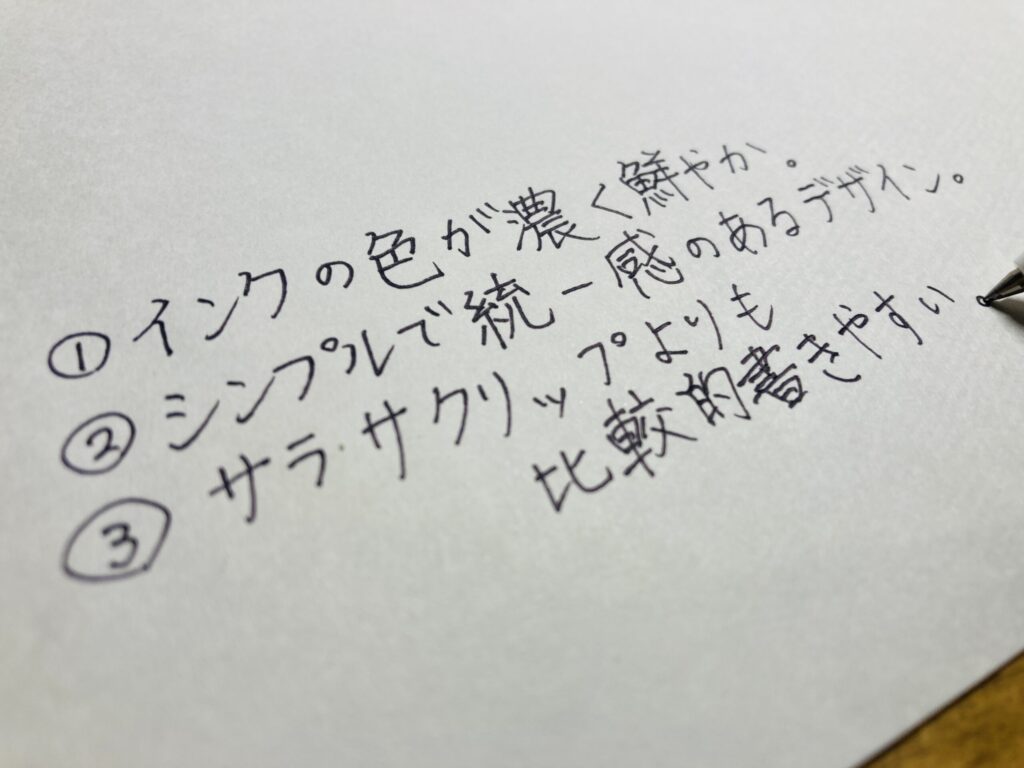 ①インクの色が濃く鮮やか。
②シンプルで統一感のあるデザイン。
③サラサクリップよりも
比較的書きやすい。